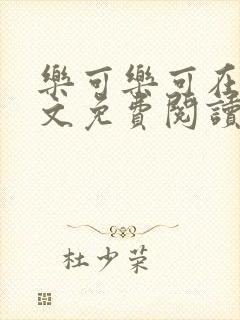 樂可樂可在
文免費閱讀
杜少荣